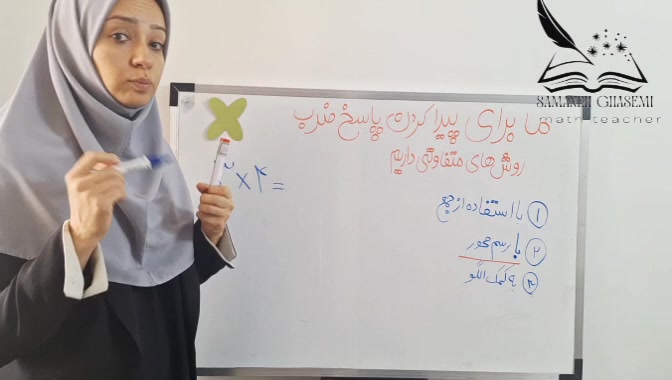 SAMANEH GHASEMI
math teacher
ما برای پیدا کردن پاسخ ضرب
روش های متفاوتی داریم
۳ × ۴ =
۱ با استفاده از جمع
۲ با رسم محور
۳ به کمک الگو